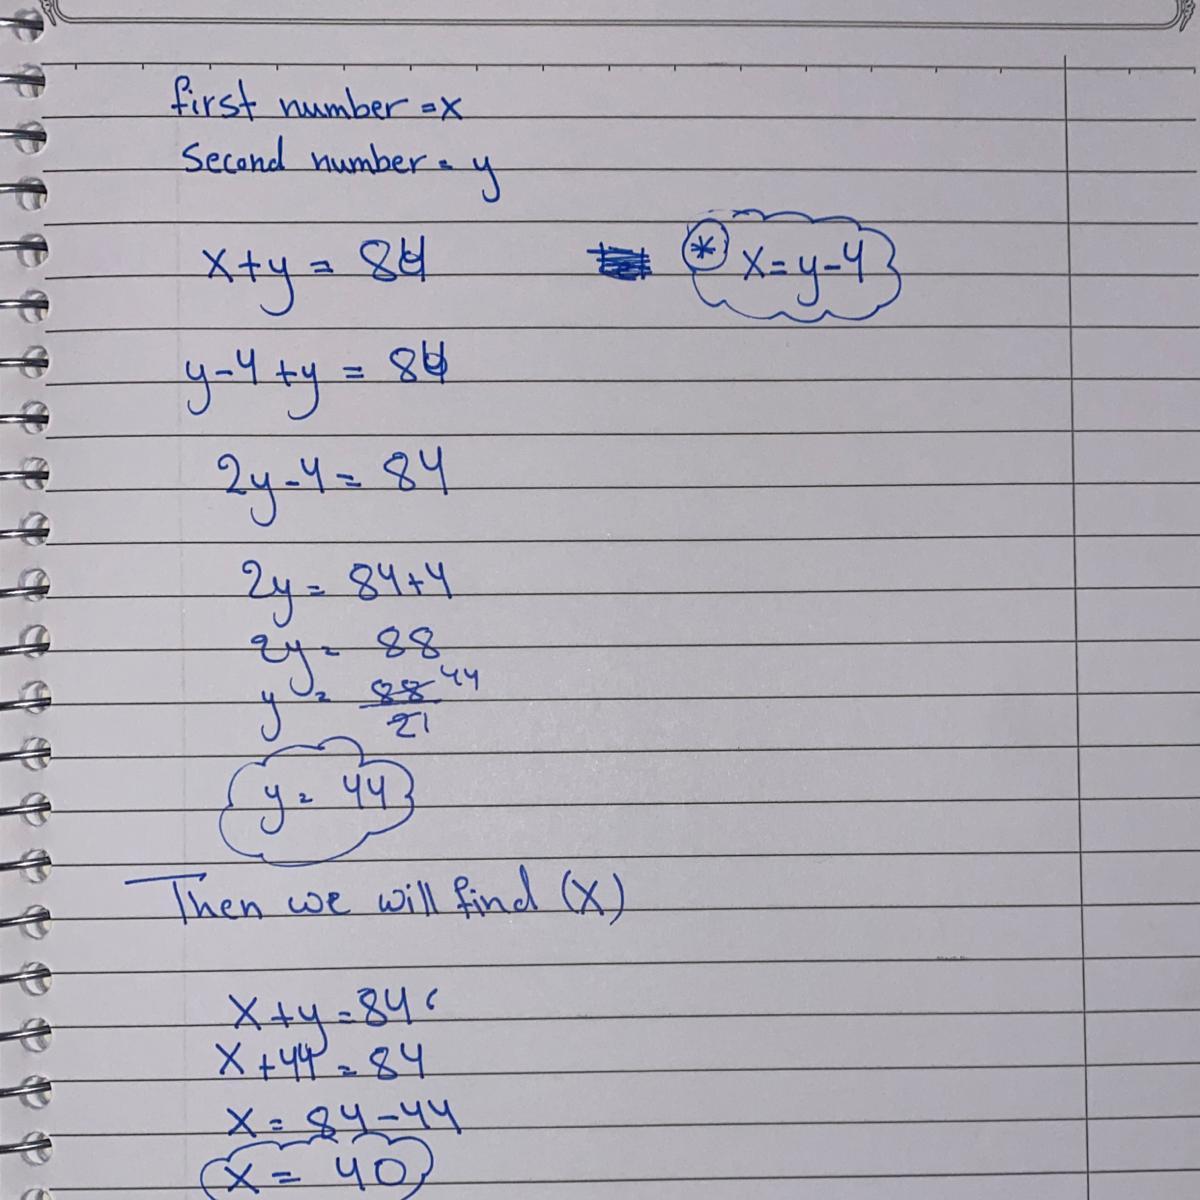 first number = x
Second number = y
x+y = 84 * x=y-4
y-4+y = 84
2y-4= 84
2y= 84+4
2y= 88
y = 88/2 44 1
y= 44
Then we will find (x)
x+y=84
x+44=84
x= 84-44
x= 40